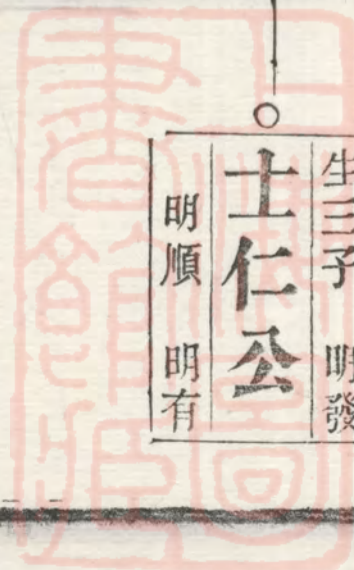 生三子 明發
士仁公
明順 明有